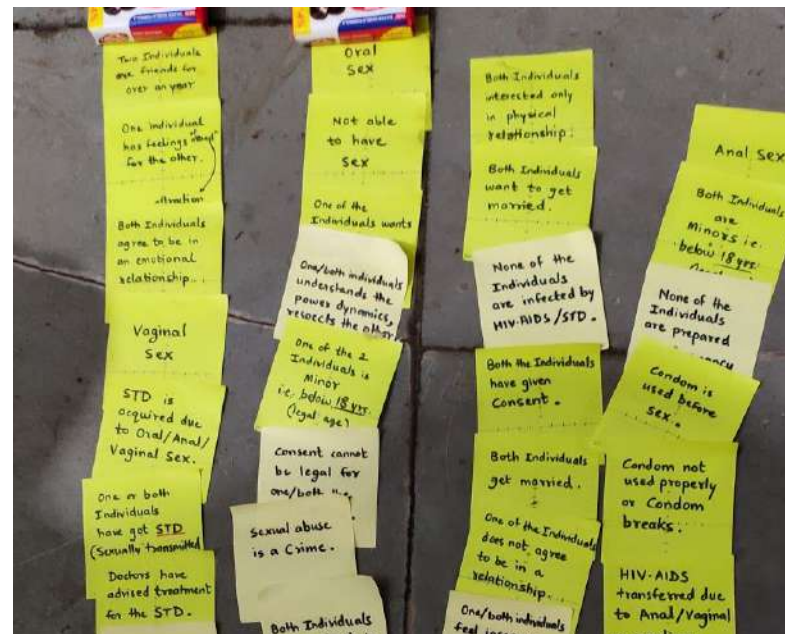 Two Individuals
are friends for
over an year
One individual
has feelings of
for the other.
attraction
Both Individuals
agree to be in
an emotional
relationship...
Vaginal
Sex
STD is
acquired due
to Oral/Anal/
Vaginal Sex.
One or both
Individuals
have got STD
(Sexually transmitted
Doctors have
advised treatment
for the STD.
Oral
Sex
Not able
to have
Sex
One of the
Individuals wants
One/both individuals
understands the
power dynamics,
respects the other
One of the 2
Individuals is
Minor
i.e. below 18 yrs.
(legal age)
Consent cannot
be legal for
one/both
Sexual abuse
is a Crime.
Both Individuals
Both Individuals
interested only
in physical
relationship.
Both Individuals
want to get
married.
None of the
Individuals
are infected by
HIV-AIDS/STD.
Both the Individuals
have given
Consent.
Both Individuals
get married.
One of the Individuals
does not agree
to be in a
relationship...
One/both individuals
feel
Anal Sex
Both Individuals
are
Minors i.e.
below 18 yrs.
None of the
Individuals
are prepared
Condom is
used before
sex.
Condom not
used properly
or Condom
breaks.
HIV-AIDS
transferred due
to Anal/Vaginal